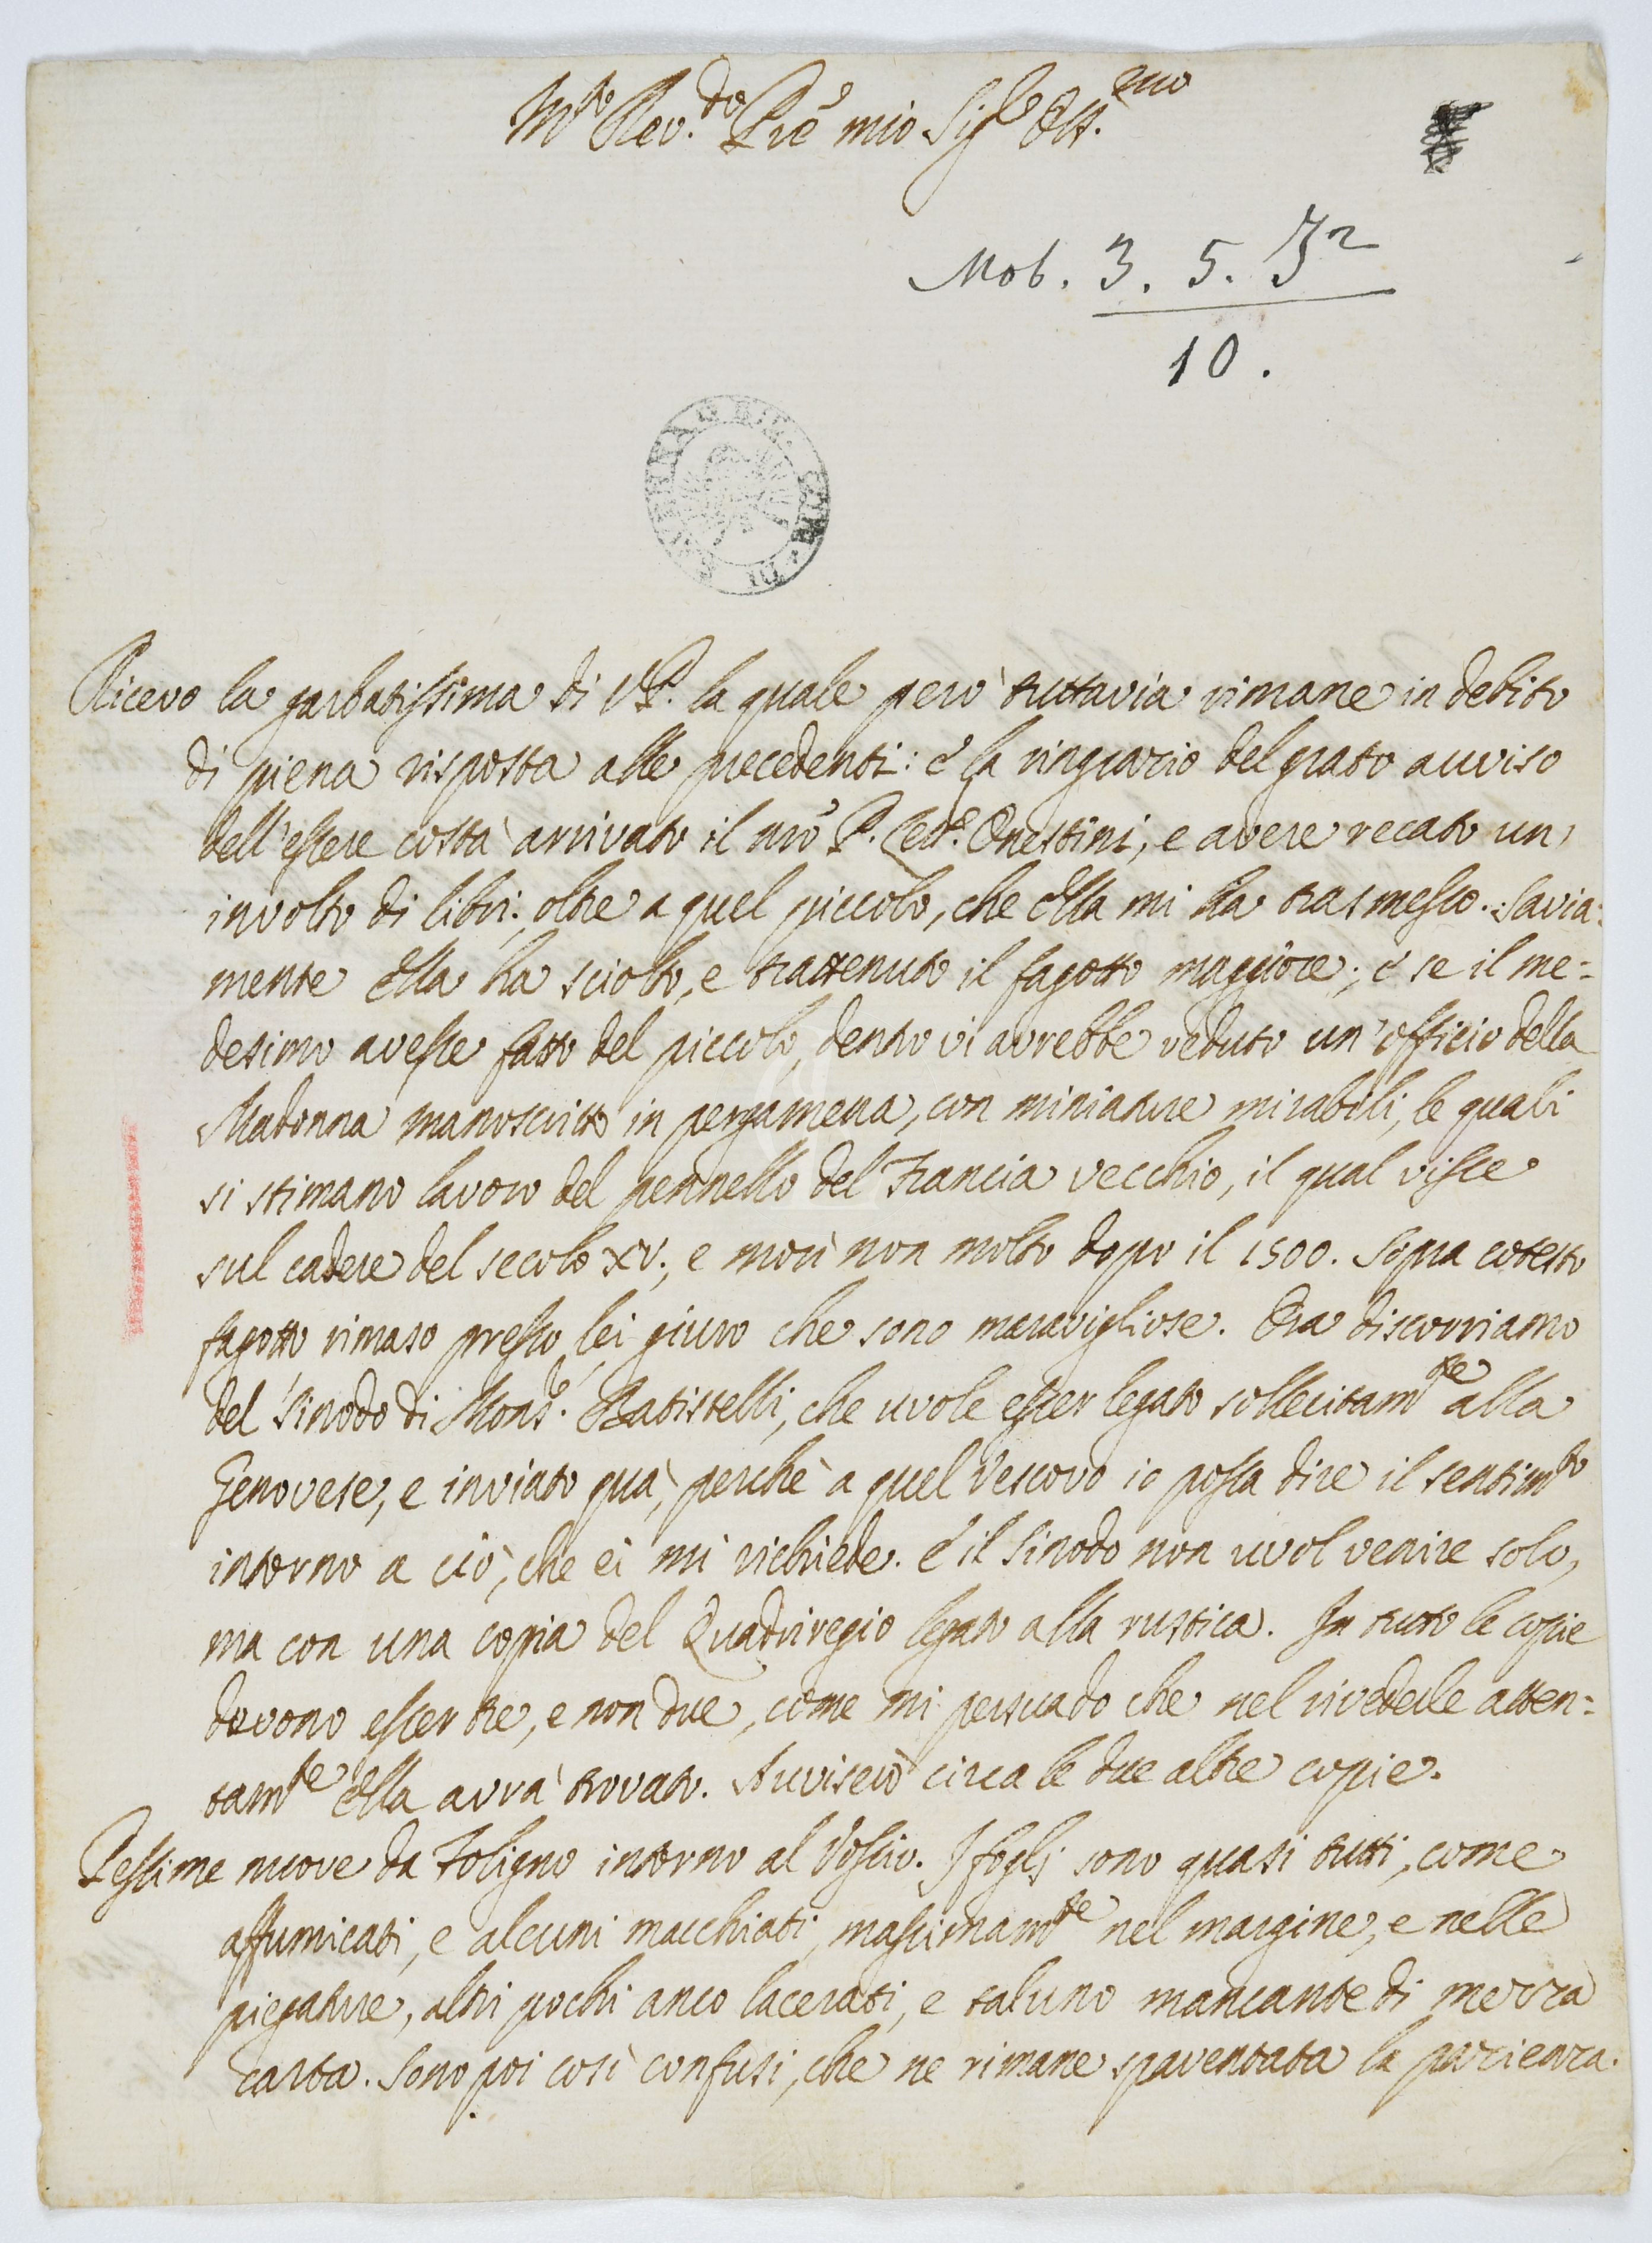 M.to Rev.do Pre mio Sig.re Oss.mo
Mob. 3. 5. J2
10.
Ricevo la garbatissima di V P. la quale però tuttavia rimane in debito
di piena risposta alle precedenti: e la ringrazio del grato auviso
dell'essere costà arrivato il nro P. Onestini, e avere recato un
involto di libri, oltre a quel piccolo, che Ella mi ha trasmesso. Savia=
mente Ella ha sciolto, e trattenuto il fagotto maggiore; e se il me=
desimo avesse fatto del piccolo, dentro vi avrebbe veduto un'officio della
Madonna manoscritto in pergamena, con miniature mirabili, le quali
si stimano lavoro del pennello del Francia vecchio, il qual visse
sul cadere del secolo XV., e morì non molto dopo il 1500. Sopra cotesto
fagotto rimaso presso lei giuro che sono maravigliose. Ora discorriamo
del Sinodo di Mons.r Batistelli, che uvole esser legato sollecitam.te alla
Genovese, e inviato quà, perchè a quel Vescovo io possa dire il sentim.to
intorno a ciò, che ei mi richiede. e il Sinodo non uvol venire solo,
ma con una copia del Quadriregio legato alla rustica. In tutto le copie
dovono esser tre, e non due, come mi persuado che nel rivederle atten=
tam.te Ella avrà trovato. Auviserò circa le due altre copie.
Pessime nuove da Foligno intorno al Vossio. I foglj sono quasi tutti, come
affumicati, e alcuni macchiati, massimam.te nel margine, e nelle
piegature, altri pochi anco lacerati, e taluno mancante di mezza
carta. Sono poi così confusi, che ne rimane spaventata la pazienza.